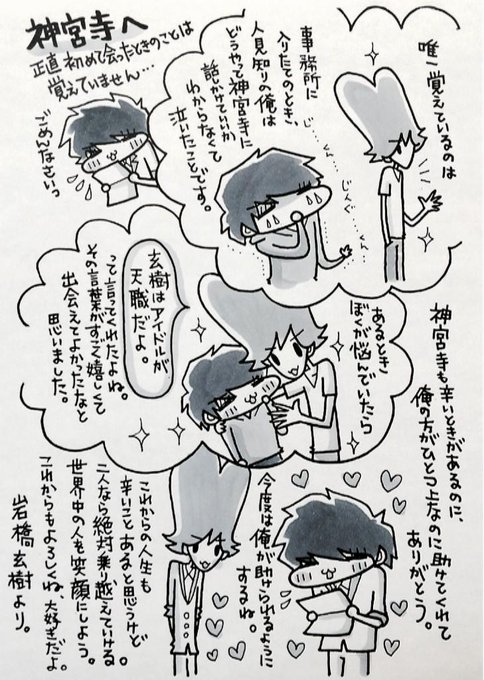 神宮寺へ
正直初めて会ったときのことは
覚えていません…
ごめんなさいっ
唯一覚えているのは
事務所に
入りたてのとき、
人見知りの俺は
どうやって神宮寺に
話しかけていいか
わからなくて
泣いたことです。
じ…
くん…
じんぐ
くん
あるとき
ぼくが悩んでいたら
玄樹はアイドルが
天職だよ。
って言ってくれたよね。
その言葉がすごく嬉しくて
出会えてよかったなと
思いました。
神宮寺も辛いときがあるのに、
俺の方がひとつ上なのに助けてくれて
ありがとう。
今度は俺が助けられるように
するね。
これからの人生も
辛いことあると思うけど
二人なら絶対乗り越えていける。
世界中の人も笑顔にしよう。
これからもよろしくね、大好きだよ。
岩橋玄樹より。